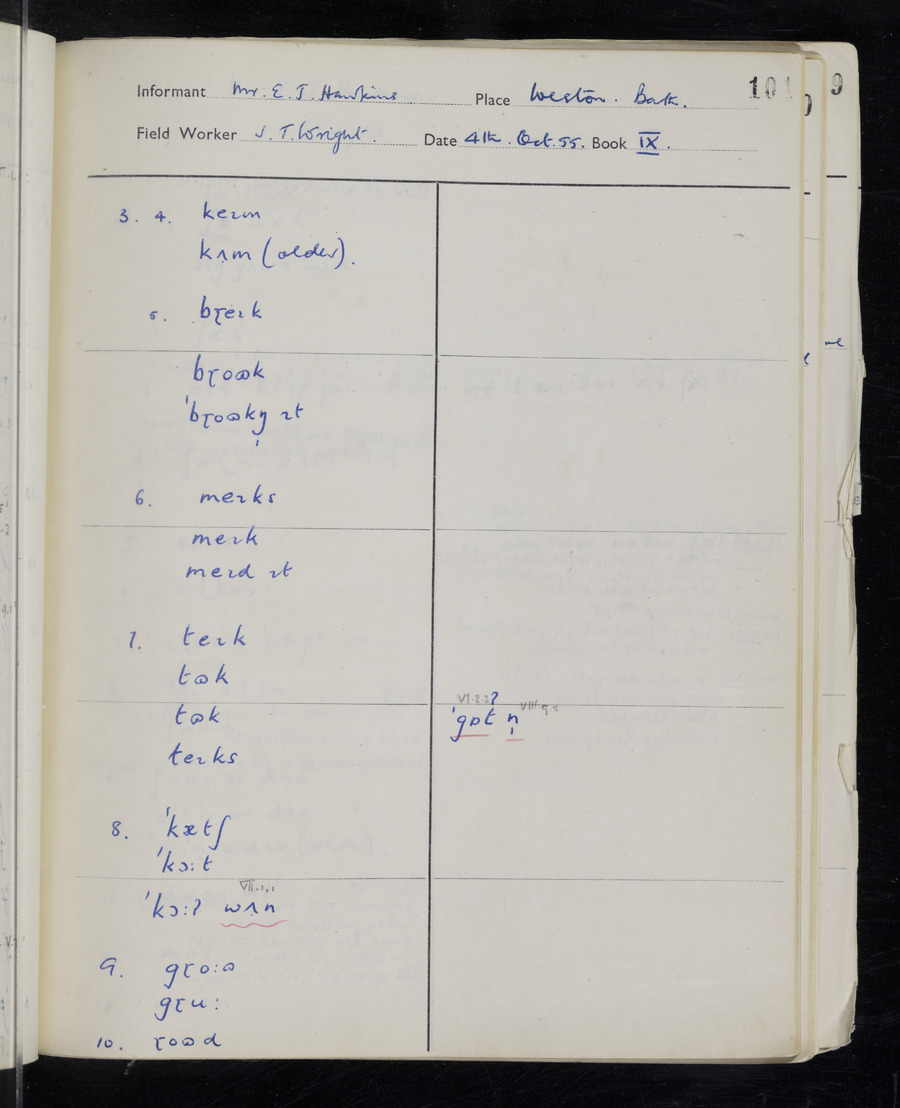 Informant Mr. E. T. Hawkins Place Weston. Bath. 101 9
Field Worker J. T. Wright. Date 4th. Oct. 55. Book IX.
3. 4. keɪm
kʌm (older).
5. bɽeɪk
bɽoʊk
ˈbɽoʊkn̩ ɪt
6. meɪks
meɪk
meɪd ɪt
7. teɪk
tʊk
VI.2.2?
tʊk ˈgɒt n̩
teɪks
8. ˈkætʃ
ˈkɔ:t
VII.1.1
ˈkɔ:ʔ wʌn
9. gɽo:ʊ
gɽu:
10. ɽoʊd